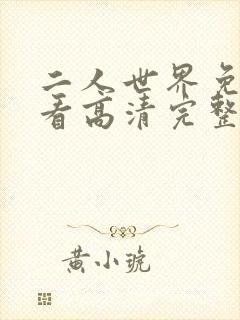 二人世界免
看高清完整
黄小琥